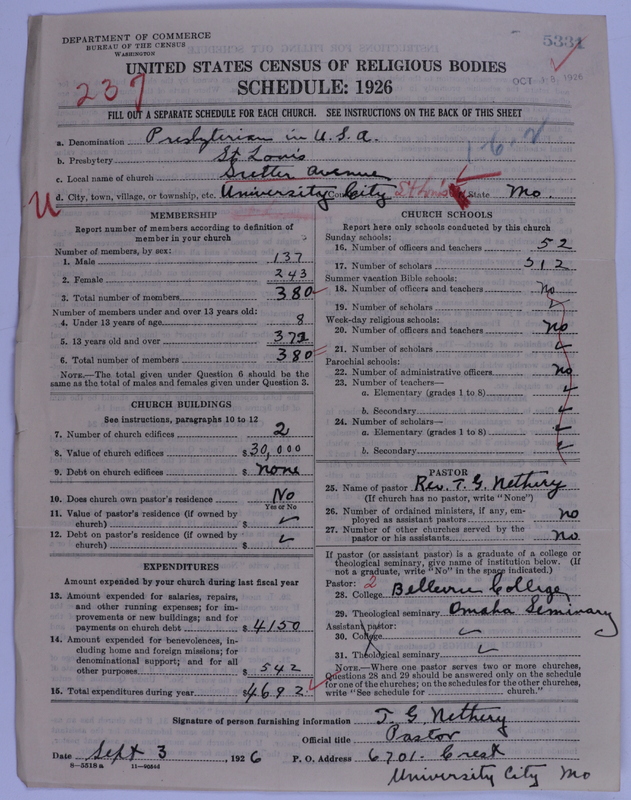 DEPARTMENT OF COMMERCE
BUREAU OF THE CENSUS
WASHINGTON
5331
OCT 18 1926
UNITED STATES CENSUS OF RELIGIOUS BODIES
SCHEDULE: 1926
237
FILL OUT A SEPARATE SCHEDULE FOR EACH CHURCH. SEE INSTRUCTIONS ON THE BACK OF THIS SHEET
a. Denomination Presbyterian in U.S.A.
b. Presbytery St Louis
c. Local name of church Sutter Avenue
d. City, town, village, or township, etc. University City St Louis State Mo.
MEMBERSHIP
Report number of members according to definition of
member in your church
Number of members, by sex:
1. Male 137
2. Female 243
3. Total number of members 380
Number of members under and over 13 years old:
4. Under 13 years of age 8
5. 13 years old and over 372
6. Total number of members 380
NOTE.—The total given under Question 6 should be the
same as the total of males and females given under Question 3.
CHURCH BUILDINGS
See instructions, paragraphs 10 to 12
7. Number of church edifices 2
8. Value of church edifices $30,000
9. Debt on church edifices $ none
10. Does church own pastor's residence No
Yes or No
11. Value of pastor's residence (if owned by
church) $
12. Debt on pastor's residence (if owned by
church) $
EXPENDITURES
Amount expended by your church during last fiscal year
13. Amount expended for salaries, repairs,
and other running expenses; for im-
provements or new buildings; and for
payments on church debt $4150
14. Amount expended for benevolences, in-
cluding home and foreign missions; for
denominational support; and for all
other purposes $ 542
15. Total expenditures during year $4692
CHURCH SCHOOLS
Report here only schools conducted by this church
Sunday schools:
16. Number of officers and teachers 52
17. Number of scholars 512
Summer vacation Bible schools:
18. Number of officers and teachers No
19. Number of scholars
Week-day religious schools:
20. Number of officers and teachers No
21. Number of scholars
Parochial schools:
22. Number of administrative officers No
23. Number of teachers—
a. Elementary (grades 1 to 8)
b. Secondary
24. Number of scholars—
a. Elementary (grades 1 to 8)
b. Secondary
PASTOR
25. Name of pastor Rev. T. G. Nethery
(If church has no pastor, write "None")
26. Number of ordained ministers, if any, em-
ployed as assistant pastors no
27. Number of other churches served by the
pastor or his assistants No
If pastor (or assistant pastor) is a graduate of a college or
theological seminary, give name of institution below. (If
not a graduate, write "No" in the space indicated.)
Pastor: 2
28. College Bellevue College
29. Theological seminary Omaha Seminary
Assistant pastor:
30. College
31. Theological seminary
NOTE.—Where one pastor serves two or more churches,
Questions 28 and 29 should be answered only on the schedule
for one of the churches; on the schedules for the other churches,
write "See schedule for church."
Signature of person furnishing information T. G. Nethery
Official title Pastor
Date Sept 3, 1926 P. O. Address 6701. Crest
8-5518 a
University City Mo